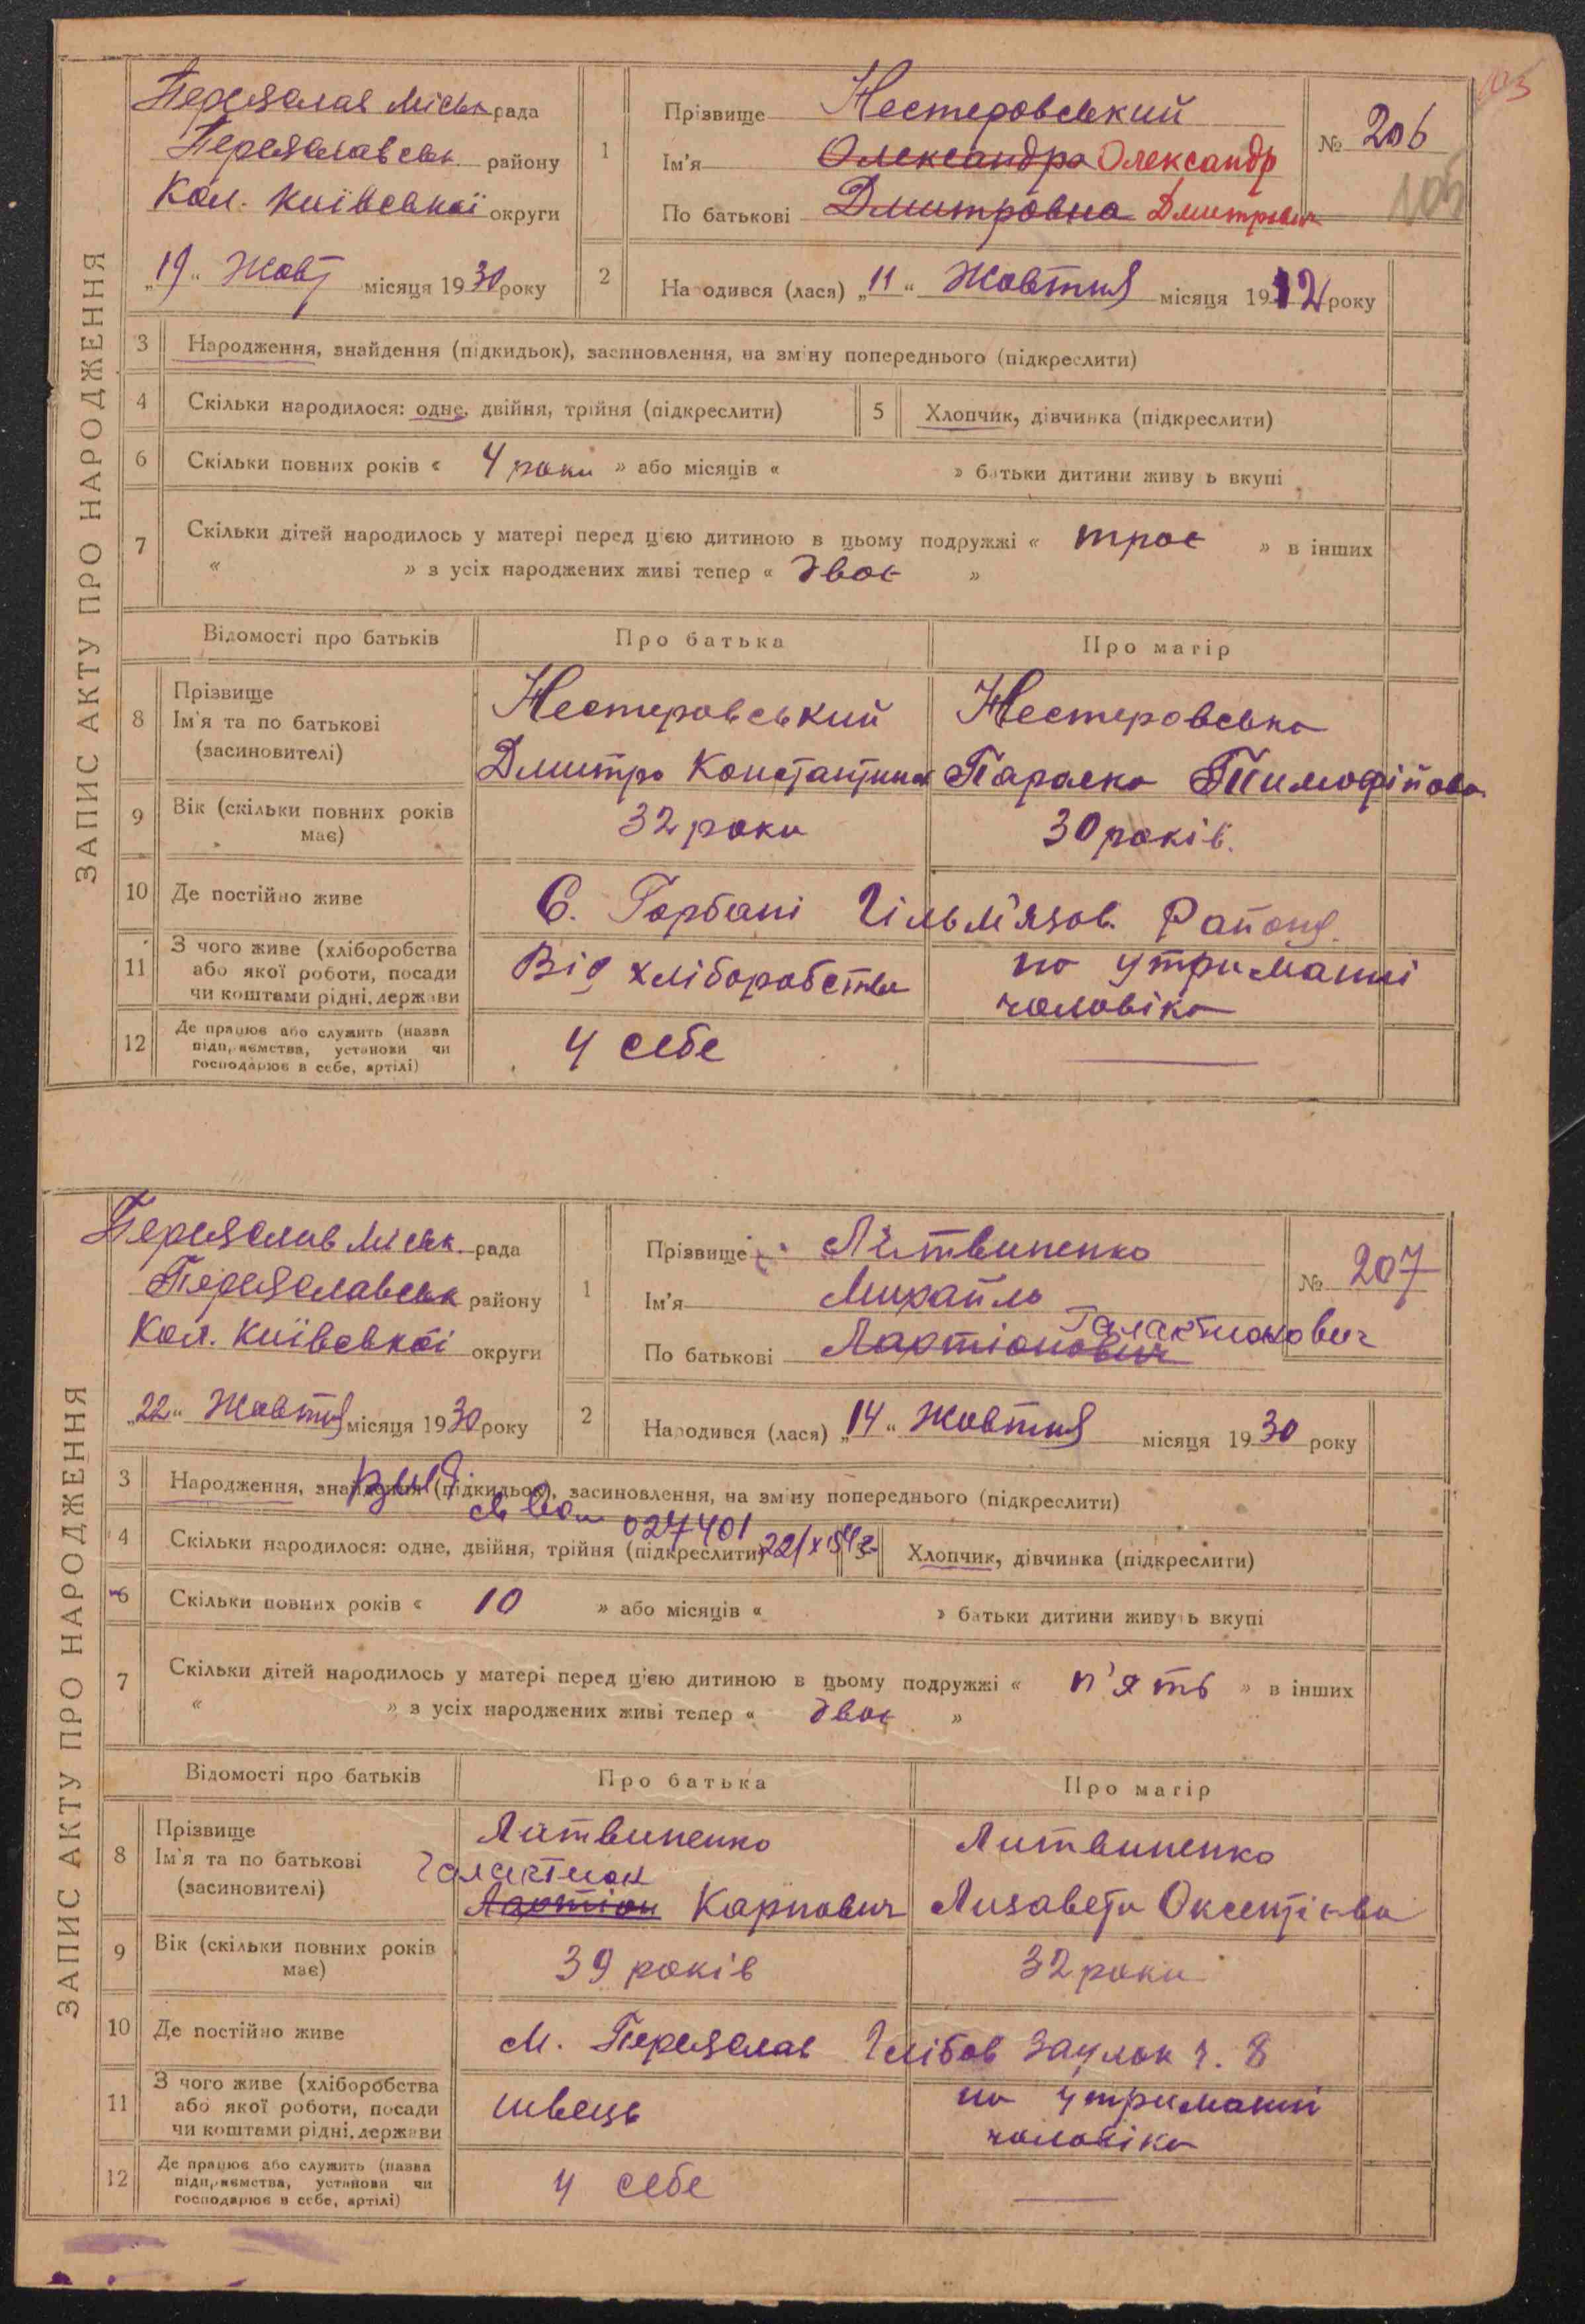 105
ЗАПИС АКТУ ПРО НАРОДЖЕННЯ
Переяслав міськ рада
Переяславськ району
Кол. Київської округи
„19“ Жовт місяця 1930 року
1
Прізвище Нестеровський
Ім'я Олександра Олександр
По батькові Дмитровна Дмитрович
№ 206
105
2
Народився (лася) „11“ Жовтня місяця 1912 року
3 Народження, знайдення (підкидьок), засиновлення, на зміну попереднього (підкреслити)
4 Скільки народилося: одне, двійня, трійня (підкреслити)
5 Хлопчик, дівчинка (підкреслити)
6 Скільки повних років « 4 роки » або місяців « » батьки дитини живуть вкупі
7 Скільки дітей народилось у матері перед цією дитиною в цьому подружжі « троє » в інших
« » з усіх народжених живі тепер « двоє »
Відомості про батьків Про батька Про матір
8 Прізвище
Ім'я та по батькові
(засиновителі)
Нестеровський
Дмитро Константинов
Нестеровська
Параска Тимофійовна
9 Вік (скільки повних років має) 32 роки 30 років.
10 Де постійно живе С. Горбані Гільм'язов. Району.
11 З чого живе (хліборобства
або якої роботи, посади
чи коштами рідні, держави
Від хліборобства
на утриманні
чоловіка
12 Де працює або служить (назва
підприємства, установи чи
господарює в себе, артілі)
У себе
ЗАПИС АКТУ ПРО НАРОДЖЕННЯ
Переяслав міськ. рада
Переяславськ району
Кол. Київської округи
„22“ Жовтня місяця 1930 року
1
Прізвище Литвиненко
Ім'я Михайло
Галактионович
По батькові Лартіонович
№ 207
2
Народився (лася) „14“ Жовтня місяця 1930 року
3 Народження, знайдення (підкидьок), засиновлення, на зміну попереднього (підкреслити)
027401
4 Скільки народилося: одне, двійня, трійня (підкреслити)
5 Хлопчик, дівчинка (підкреслити)
6 Скільки повних років « 10 » або місяців « » батьки дитини живуть вкупі
7 Скільки дітей народилось у матері перед цією дитиною в цьому подружжі « п'ять » в інших
« » з усіх народжених живі тепер « двоє »
Відомості про батьків Про батька Про матір
8 Прізвище
Ім'я та по батькові
(засиновителі)
Литвиненко
Галактион
Лартіон Карпович
Литвиненко
Лизавета Оксентієва
9 Вік (скільки повних років має) 39 років 32 роки
10 Де постійно живе м. Переяслав Глібов Заулок ч. 8
11 З чого живе (хліборобства
або якої роботи, посади
чи коштами рідні, держави
швець
на утриманні
чоловіка
12 Де працює або служить (назва
підприємства, установи чи
господарює в себе, артілі)
У себе